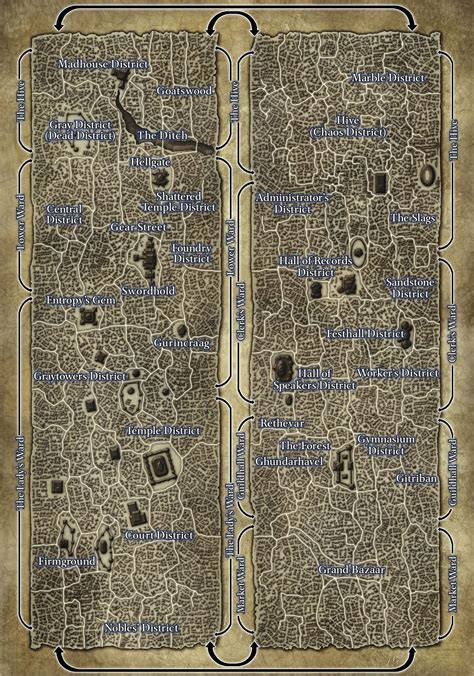 Madhouse District
Goatswood
The Hive
Gray District
(Dead District)
The Ditch
Hellgate
Shattered
Temple District
Lower Ward
Central
District
Gear Street
Foundry
District
Swordhold
Entropy's Gem
Gurincraag
Graytowers District
The Lady's Ward
Temple District
Court District
Firmground
Nobles' District
The Hive
Lower Ward
Clerk's Ward
The Lady's Ward
Guildhall Ward
Market Ward
Marble District
Hive
(Chaos District)
The Hive
Administrator's
District
The Slags
Hall of Records
District
Sandstone
District
Festhall District
Clerk's Ward
Hall of
Speakers District
Worker's District
Rethevar
The Forest
Ghundarhavel
Gymnasium
District
Gitriban
Guildhall Ward
Grand Bazaar
Market Ward